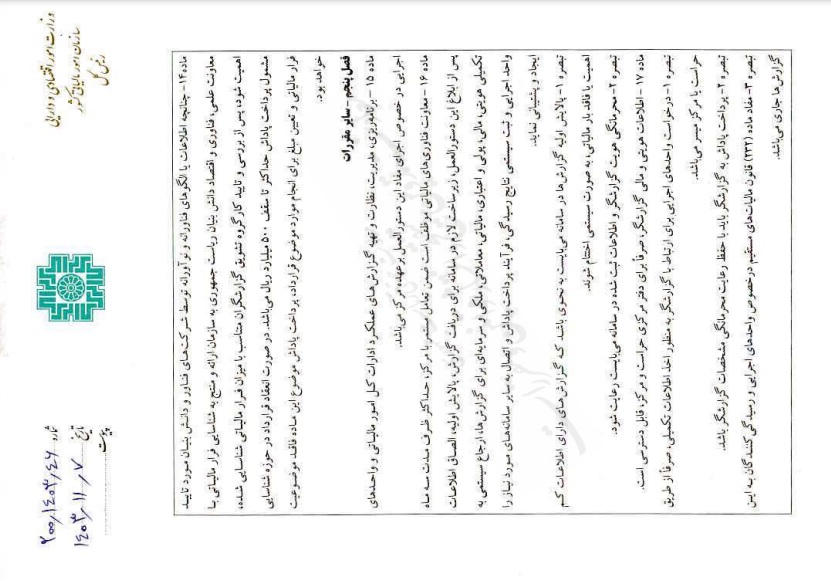 وزارت امور اقتصادی و دارایی
سازمان امور مالیاتی کشور
رئیس کل
شماره ۲۰۰/۱۴۰۳/۴۶
تاریخ ۱۴۰۳/۱۱/۰۷
پیوست
ماده ۱۴- چنانچه اطلاعات یا الگوهای فناورانه و نوآورانه توسط شرکت‌های فناور و دانش بنیان مورد تایید
معاونت علمی، فناوری و اقتصاد دانش بنیان ریاست جمهوری به سازمان ارائه و منتج به شناسایی فرار مالیاتی با
اهمیت شود، پس از بررسی و تایید کارگروه تشویق گزارشگران متناسب با میزان فرار مالیاتی شناسایی شده،
مشمول پرداخت پاداش حداکثر تا سقف ۵۰۰ میلیارد ریال می‌باشد. در صورت انعقاد قرارداد در حوزه شناسایی
فرار مالیاتی و تعیین مبلغ برای انجام موارد موضوع قرارداد، پرداخت پاداش موضوع این ماده فاقد موضوعیت
خواهد بود.
فصل پنجم - سایر مقررات
ماده ۱۵- برنامه‌ریزی، مدیریت، نظارت و تهیه گزارش‌های عملکرد ادارات کل امور مالیاتی و واحدهای
اجرایی در خصوص اجرای مفاد این دستورالعمل بر عهده مرکز می‌باشد.
ماده ۱۶- معاونت فناوری‌های مالیاتی موظف است ضمن تعامل مستمر با مرکز، حداکثر ظرف مدت سه ماه
پس از ابلاغ این دستورالعمل، زیرساخت لازم در سامانه برای دریافت گزارش، پالایش اولیه، الصاق اطلاعات
تکمیلی هویتی، مالی، پولی و اعتباری، مالیاتی، معاملاتی، ملکی و سرمایه‌ای برای گزارش‌ها، ارجاع سیستمی به
واحد اجرایی و ثبت سیستمی نتایج رسیدگی، فرآیند پرداخت پاداش و اتصال به سایر سامانه‌های مورد نیاز را
ایجاد و پشتیبانی نماید.
تبصره ۱- پالایش اولیه گزارش‌ها در سامانه می‌بایست به نحوی باشد که گزارش های دارای اطلاعات کم
اهمیت یا فاقد بار مالیاتی، به صورت سیستمی اختتام شوند.
تبصره ۲- محرمانگی هویت گزارشگر و اطلاعات ثبت شده در سامانه می‌بایست رعایت شود.
ماده ۱۷- اطلاعات هویتی و مالی گزارشگر، صرفاً برای دفتر مرکزی حراست و مرکز، قابل دسترسی است.
تبصره ۱- درخواست واحدهای اجرایی برای ارتباط با گزارشگر به منظور اخذ اطلاعات تکمیلی، صرفاً از طریق
حراست یا مرکز میسر می‌باشد.
تبصره ۲- پرداخت پاداش به گزارشگر باید با حفظ رعایت محرمانگی مشخصات گزارشگر باشد.
تبصره ۳- مفاد ماده (۲۳۲) قانون مالیات‌های مستقیم درخصوص واحدهای اجرایی و رسیدگی کنندگان به این
گزارش‌ها جاری می‌باشد.